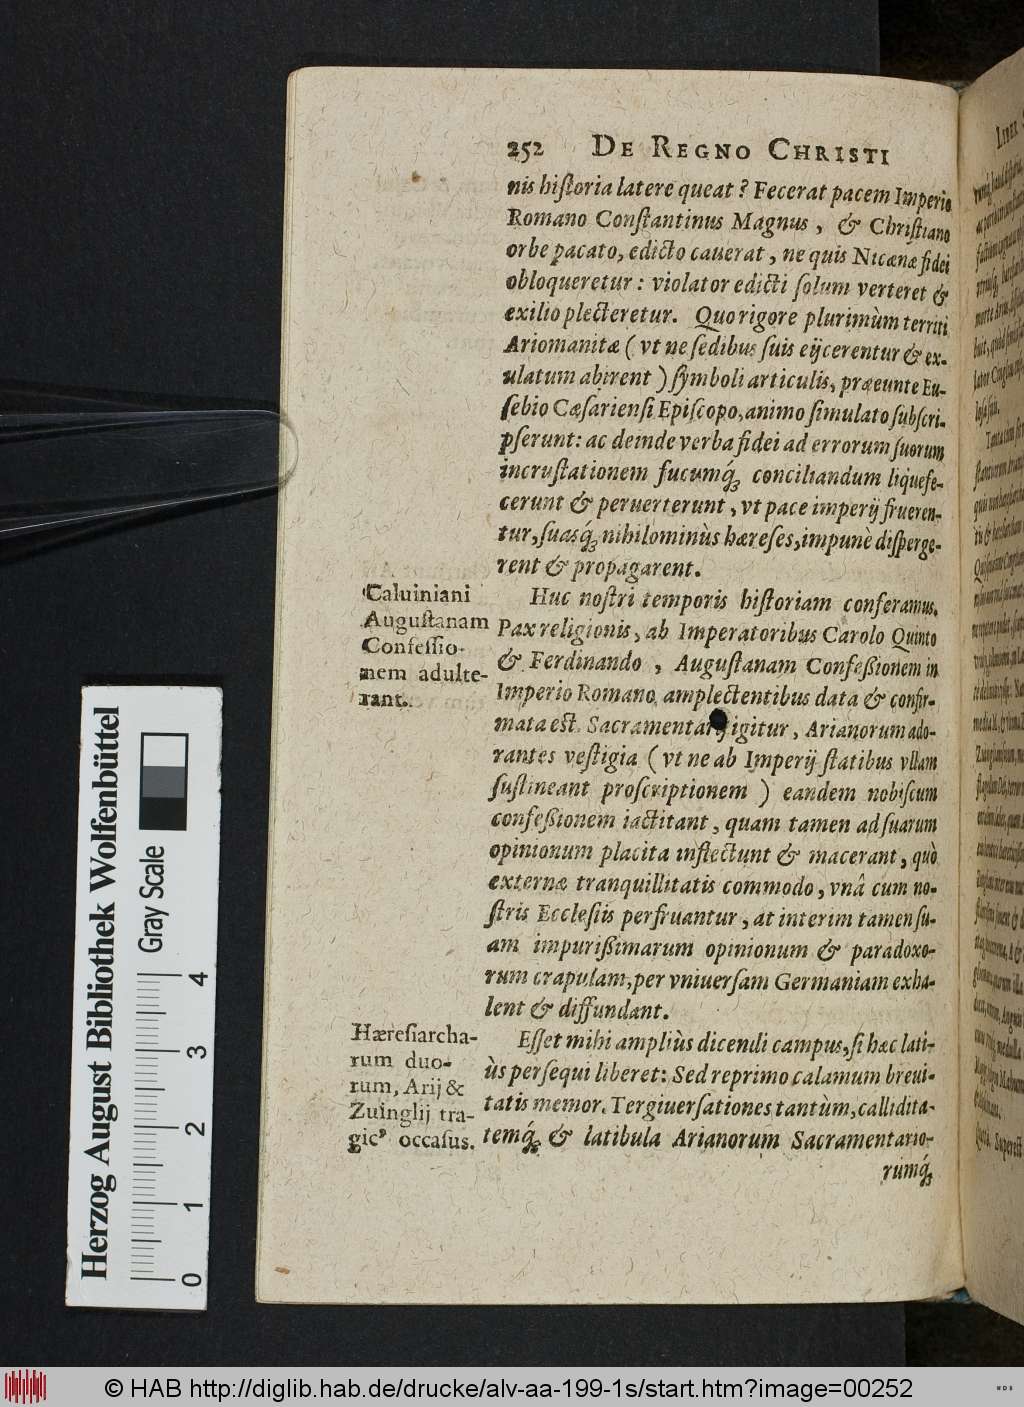 252 DE REGNO CHRISTI
nis hiſtoria latere queat? Fecerat pacem Imperio
Romano Conſtantinus Magnus, & Chriſtiano
orbe pacato, edicto cauerat, ne quis Nicænæ fidei
obloqueretur: violator edicti ſolum verteret &
exilio plecteretur. Quo rigore plurimùm territi
Ariomanitæ (vt ne ſedibus ſuis eijcerentur & ex-
ulatum abirent) ſymboli articulis, præeunte Eu-
ſebio Cæſarienſi Epiſcopo, animo ſimulato ſubſcri-
pſerunt: ac deinde verba fidei ad errorum ſuorum
incruſtationem fucumq́ꝫ conciliandum liquefe-
cerunt & peruerterunt, vt pace imperij fruerен-
tur, ſuasq́ꝫ nihilominùs hæreſes, impunè diſperge-
rent & propagarent.
Caluiniani
Auguſtanam
Confeſſio-
nem adulte-
rant.
Huc noſtri temporis hiſtoriam conferamus.
Pax religionis, ab Imperatoribus Carolo Quinto
& Ferdinando, Auguſtanam Confeßionem in
Imperio Romano amplectentibus data & confir-
mata eſt. Sacramentarij igitur, Arianorum ado-
rantes veſtigia (vt ne ab Imperij ſtatibus vllam
ſuſtineant proſcriptionem) eandem nobiſcum
confeßionem iactitant, quam tamen ad ſuarum
opinionum placita inflectunt & macerant, quò
externæ tranquillitatis commodo, vnâ cum no-
ſtris Eccleſiis perfruantur, at interim tamen ſu-
am impurißimarum opinionum & paradoxo-
rum crapulam, per vniuerſam Germaniam exha-
lent & diffundant.
Hæreſiarcha-
rum duo-
rum, Arij &
Zuinglij tra-
gicꝰ occaſus.
Eſſet mihi ampliùs dicendi campus, ſi hæc lati-
ùs perſequi liberet: Sed reprimo calamum breui-
tatis memor. Tergiuerſationes tantùm, callidita-
temq́ꝫ & latibula Arianorum Sacramentario-
rumq́ꝫ
Herzog August Bibliothek Wolfenbüttel
Gray Scale
0 1 2 3 4
© HAB http://diglib.hab.de/drucke/alv-aa-199-1s/start.htm?image=00252